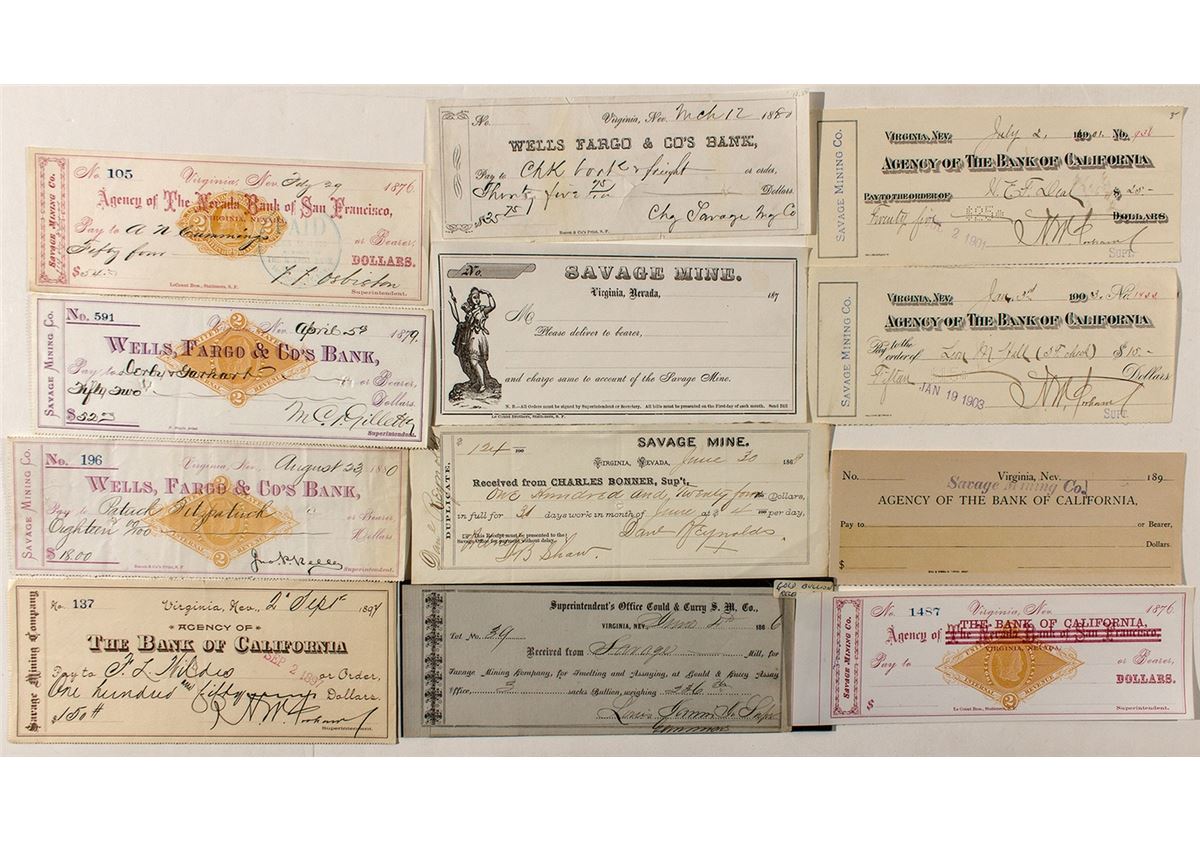 No. 105
Virginia, Nev. Feby 29 1876
Agency of The Nevada Bank of San Francisco,
VIRGINIA, NEVADA.
Pay to A N Cummings or Bearer,
Fifty four DOLLARS.
$54
PAID
Superintendent.
LeCount Bros., Stationers, S. F.
SAVAGE MINING CO.
No. 591
Nev. April 5th 1879.
WELLS, FARGO & CO'S BANK,
Pay to Derby & Garhart or Bearer,
Fifty Two Dollars.
$52
Superintendent.
SAVAGE MINING CO.
No. 196
Virginia, Nev., August 23 1880
WELLS, FARGO & CO'S BANK,
Pay to Patrick Fitzpatrick or Bearer,
Eighteen 00/100 Dollars
$18.00
SAVAGE MINING CO.
No. 137
Virginia, Nev., 2d Sept 1897
AGENCY OF
THE BANK OF CALIFORNIA
SEP 2 1897
Pay to F. L. Wildes or Order,
One hundred and fifty Dollars.
$150
Superintendent.
Savage Mining Company
No. Virginia, Nev. Mch 12 1880
WELLS FARGO & CO'S BANK,
Pay to Chk book & freight or order,
Thirty five 75/100 Dollars.
$35 75 Chg Savage Mg Co
No.
SAVAGE MINE.
Virginia, Nevada, 187
M
Please deliver to bearer,
and charge same to account of the Savage Mine.
N. B.—All Orders must be signed by Superintendent or Secretary. All bills must be presented on the First day of each month. Send Bill
Le Count Brothers, Stationers, S. F.
124 00/100
SAVAGE MINE.
VIRGINIA, NEVADA, June 30 186
DUPLICATE.
Received from CHARLES BONNER, Sup't,
One Hundred and, twenty four Dollars,
in full for 31 days work in month of June at $4 per day,
This Receipt must be presented to the
Savage Office for payment without delay.
Dave Reynolds.
Shaw.
GOLD BULLION
Superintendent's Office Gould & Curry S. M. Co.,
VIRGINIA, NEV., 186
Lot No. 39
Received from Savage Mill, for
Savage Mining Company, for Smelting and Assaying, at Gould & Curry Assay
Office, 3 sacks Bullion, weighing
Louis
VIRGINIA, NEV. July 2, 1901. No. 938
AGENCY OF THE BANK OF CALIFORNIA
PAY TO THE ORDER OF W E F Deal $25.-
Twenty five DOLLARS
2 1901
SUPT.
SAVAGE MINING CO.
VIRGINIA, NEV. Jan. 3rd 1903. No. 1433
AGENCY OF THE BANK OF CALIFORNIA
Pay to the
order of $15.-
Fifteen Dollars
JAN 19 1903
SUPT.
SAVAGE MINING CO.
No. Virginia, Nev. 189
Savage Mining Co.
AGENCY OF THE BANK OF CALIFORNIA,
Pay to or Bearer,
Dollars.
$
No. 1487 Virginia, Nev. 1876.
THE BANK OF CALIFORNIA,
Agency of The Nevada Bank of San Francisco
VIRGINIA, NEVADA.
Pay to or Bearer,
DOLLARS.
$
Le Count Bros., Stationers, Superintendent.
SAVAGE MINING CO.